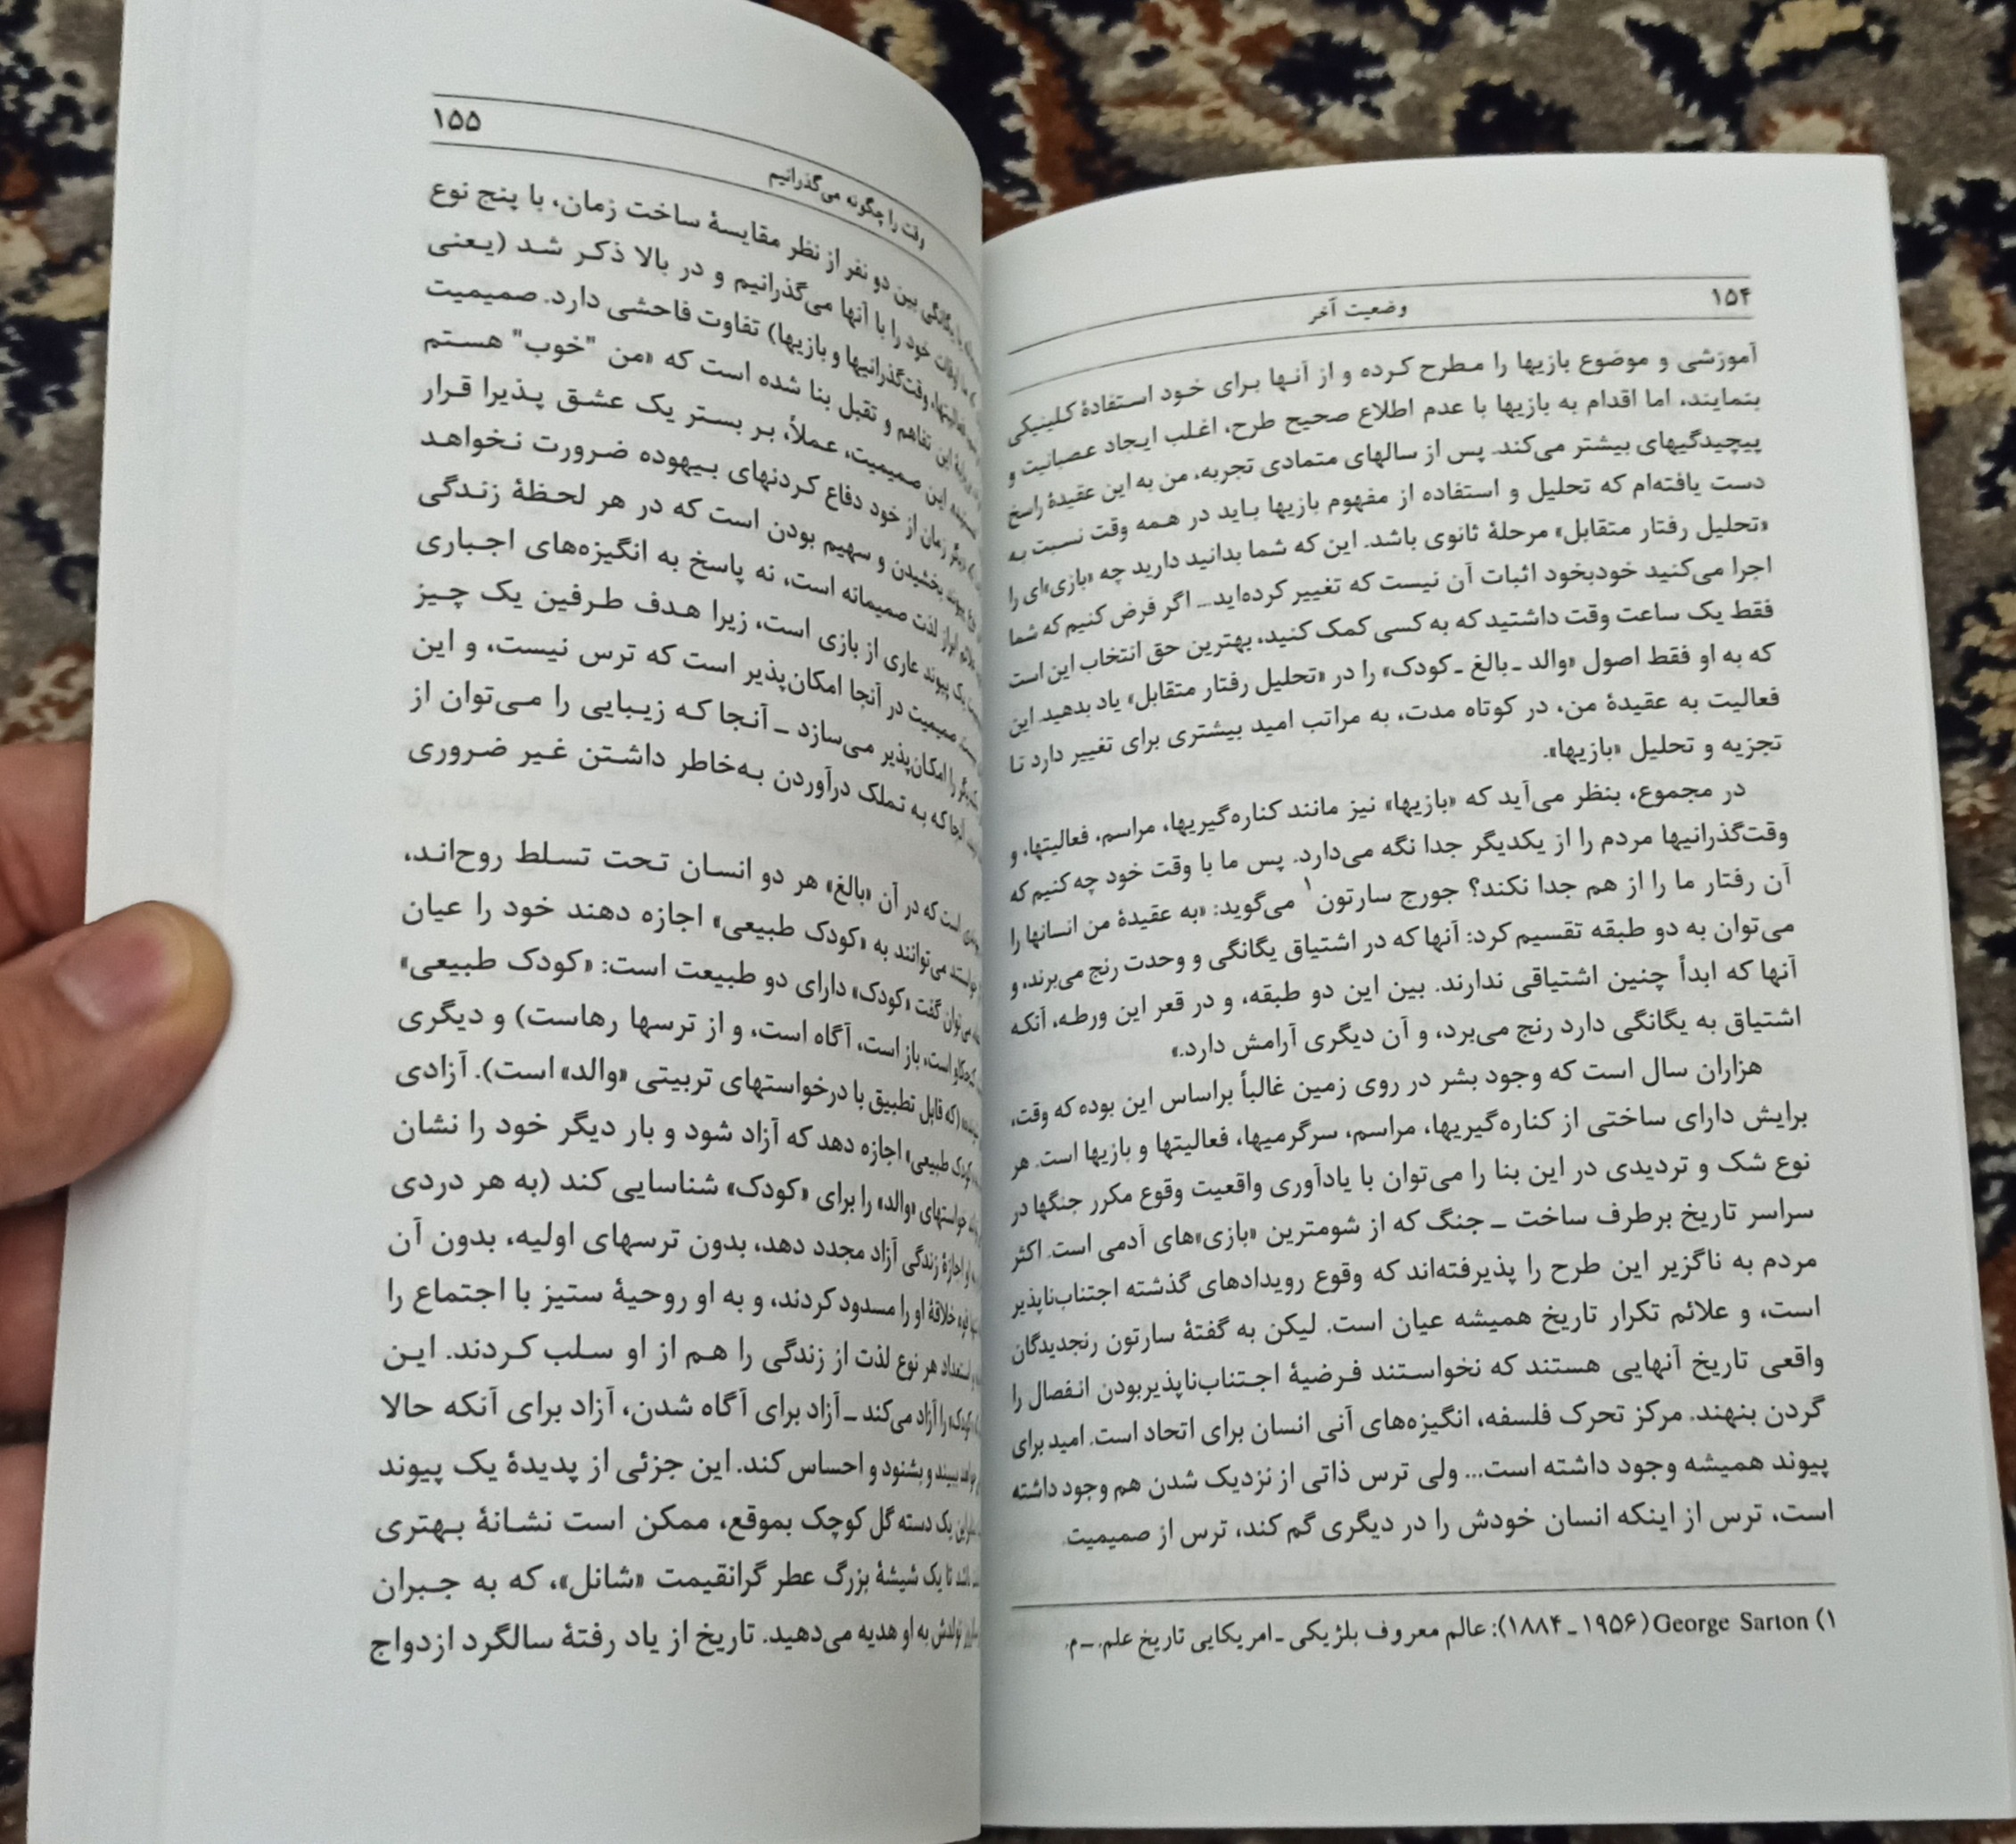 ۱۵۴
وضعیت آخر
آموزشی و موضوع بازیها را مطرح کرده و از آنها برای خود استفادهٔ کلینیکی
بنمایند، اما اقدام به بازیها با عدم اطلاع صحیح طرح، اغلب ایجاد عصبانیت و
پیچیدگیهای بیشتر می‌کند. پس از سالهای متمادی تجربه، من به این عقیدهٔ راسخ
دست یافته‌ام که تحلیل و استفاده از مفهوم بازیها باید در همه وقت نسبت به
«تحلیل رفتار متقابل» مرحلهٔ ثانوی باشد. این که شما بدانید دارید چه «بازی»ای را
اجرا می‌کنید خودبخود اثبات آن نیست که تغییر کرده‌اید... اگر فرض کنیم که شما
فقط یک ساعت وقت داشتید که به کسی کمک کنید، بهترین حق انتخاب این است
که به او فقط اصول «والد ـ بالغ ـ کودک» را در «تحلیل رفتار متقابل» یاد بدهید. این
فعالیت به عقیدهٔ من، در کوتاه مدت، به مراتب امید بیشتری برای تغییر دارد تا
تجزیه و تحلیل «بازیها».
در مجموع، بنظر می‌آید که «بازیها» نیز مانند کناره‌گیریها، مراسم، فعالیتها، و
وقت‌گذرانیها مردم را از یکدیگر جدا نگه می‌دارد. پس ما با وقت خود چه کنیم که
آن رفتار ما را از هم جدا نکند؟ جورج سارتون۱ می‌گوید: «به عقیدهٔ من انسانها را
می‌توان به دو طبقه تقسیم کرد: آنها که در اشتیاق یگانگی و وحدت رنج می‌برند، و
آنها که ابداً چنین اشتیاقی ندارند. بین این دو طبقه، و در قعر این ورطه، آنکه
اشتیاق به یگانگی دارد رنج می‌برد، و آن دیگری آرامش دارد.»
هزاران سال است که وجود بشر در روی زمین غالباً براساس این بوده که وقت،
برایش دارای ساختی از کناره‌گیریها، مراسم، سرگرمیها، فعالیتها و بازیها است. هر
نوع شک و تردیدی در این بنا را می‌توان با یادآوری واقعیت وقوع مکرر جنگها در
سراسر تاریخ برطرف ساخت ـ جنگ که از شومترین «بازی»های آدمی است. اکثر
مردم به ناگزیر این طرح را پذیرفته‌اند که وقوع رویدادهای گذشته اجتناب‌ناپذیر
است، و علائم تکرار تاریخ همیشه عیان است. لیکن به گفتهٔ سارتون رنجدیدگان
واقعی تاریخ آنهایی هستند که نخواستند فرضیهٔ اجتناب‌ناپذیربودن انفصال را
گردن بنهند. مرکز تحرک فلسفه، انگیزه‌های آنی انسان برای اتحاد است. امید برای
پیوند همیشه وجود داشته است... ولی ترس ذاتی از نزدیک شدن هم وجود داشته
است، ترس از اینکه انسان خودش را در دیگری گم کند، ترس از صمیمیت.
۱) George Sarton (۱۹۵۶ ـ ۱۸۸۴): عالم معروف بلژیکی ـ امریکایی تاریخ علم. ـ م.
۱۵۵
وقت را چگونه می‌گذرانیم
یگانگی بین دو نفر از نظر مقایسهٔ ساخت زمان، با پنج نوع
اوقات خود را با آنها می‌گذرانیم و در بالا ذکر شد (یعنی
وقت‌گذرانیها و بازیها) تفاوت فاحشی دارد. صمیمیت
این تفاهم و تقبل بنا شده است که «من "خوب" هستم
این صمیمیت، عملاً، بر بستر یک عشق پذیرا قرار
زمان از خود دفاع کردنهای بیهوده ضرورت نخواهد
پیوند بخشیدن و سهیم بودن است که در هر لحظهٔ زندگی
ابراز لذت صمیمانه است، نه پاسخ به انگیزه‌های اجباری
یک پیوند عاری از بازی است، زیرا هدف طرفین یک چیز
صمیمیت در آنجا امکان‌پذیر است که ترس نیست، و این
را امکان‌پذیر می‌سازد ـ آنجا که زیبایی را می‌توان از
آنجا که به تملک درآوردن به‌خاطر داشتن غیر ضروری
است که در آن «بالغ» هر دو انسان تحت تسلط روح‌اند،
می‌توانند به «کودک طبیعی» اجازه دهند خود را عیان
می‌توان گفت «کودک» دارای دو طبیعت است: «کودک طبیعی»
است، باز است، آگاه است، و از ترسها رهاست) و دیگری
(که قابل تطبیق با درخواستهای تربیتی «والد» است). آزادی
طبیعی» اجازه دهد که آزاد شود و بار دیگر خود را نشان
خواستهای «والد» را برای «کودک» شناسایی کند (به هر دردی
او اجازهٔ زندگی آزاد مجدد دهد، بدون ترسهای اولیه، بدون آن
قوه خلاقهٔ او را مسدود کردند، و به او روحیهٔ ستیز با اجتماع را
استعداد هر نوع لذت از زندگی را هم از او سلب کردند. این
را آزاد می‌کند ـ آزاد برای آگاه شدن، آزاد برای آنکه حالا
ببیند و بشنود و احساس کند. این جزئی از پدیدهٔ یک پیوند
یک دسته گل کوچک بموقع، ممکن است نشانهٔ بهتری
باشد تا یک شیشهٔ بزرگ عطر گرانقیمت «شانل»، که به جبران
تولدش به او هدیه می‌دهید. تاریخ از یاد رفتهٔ سالگرد ازدواج